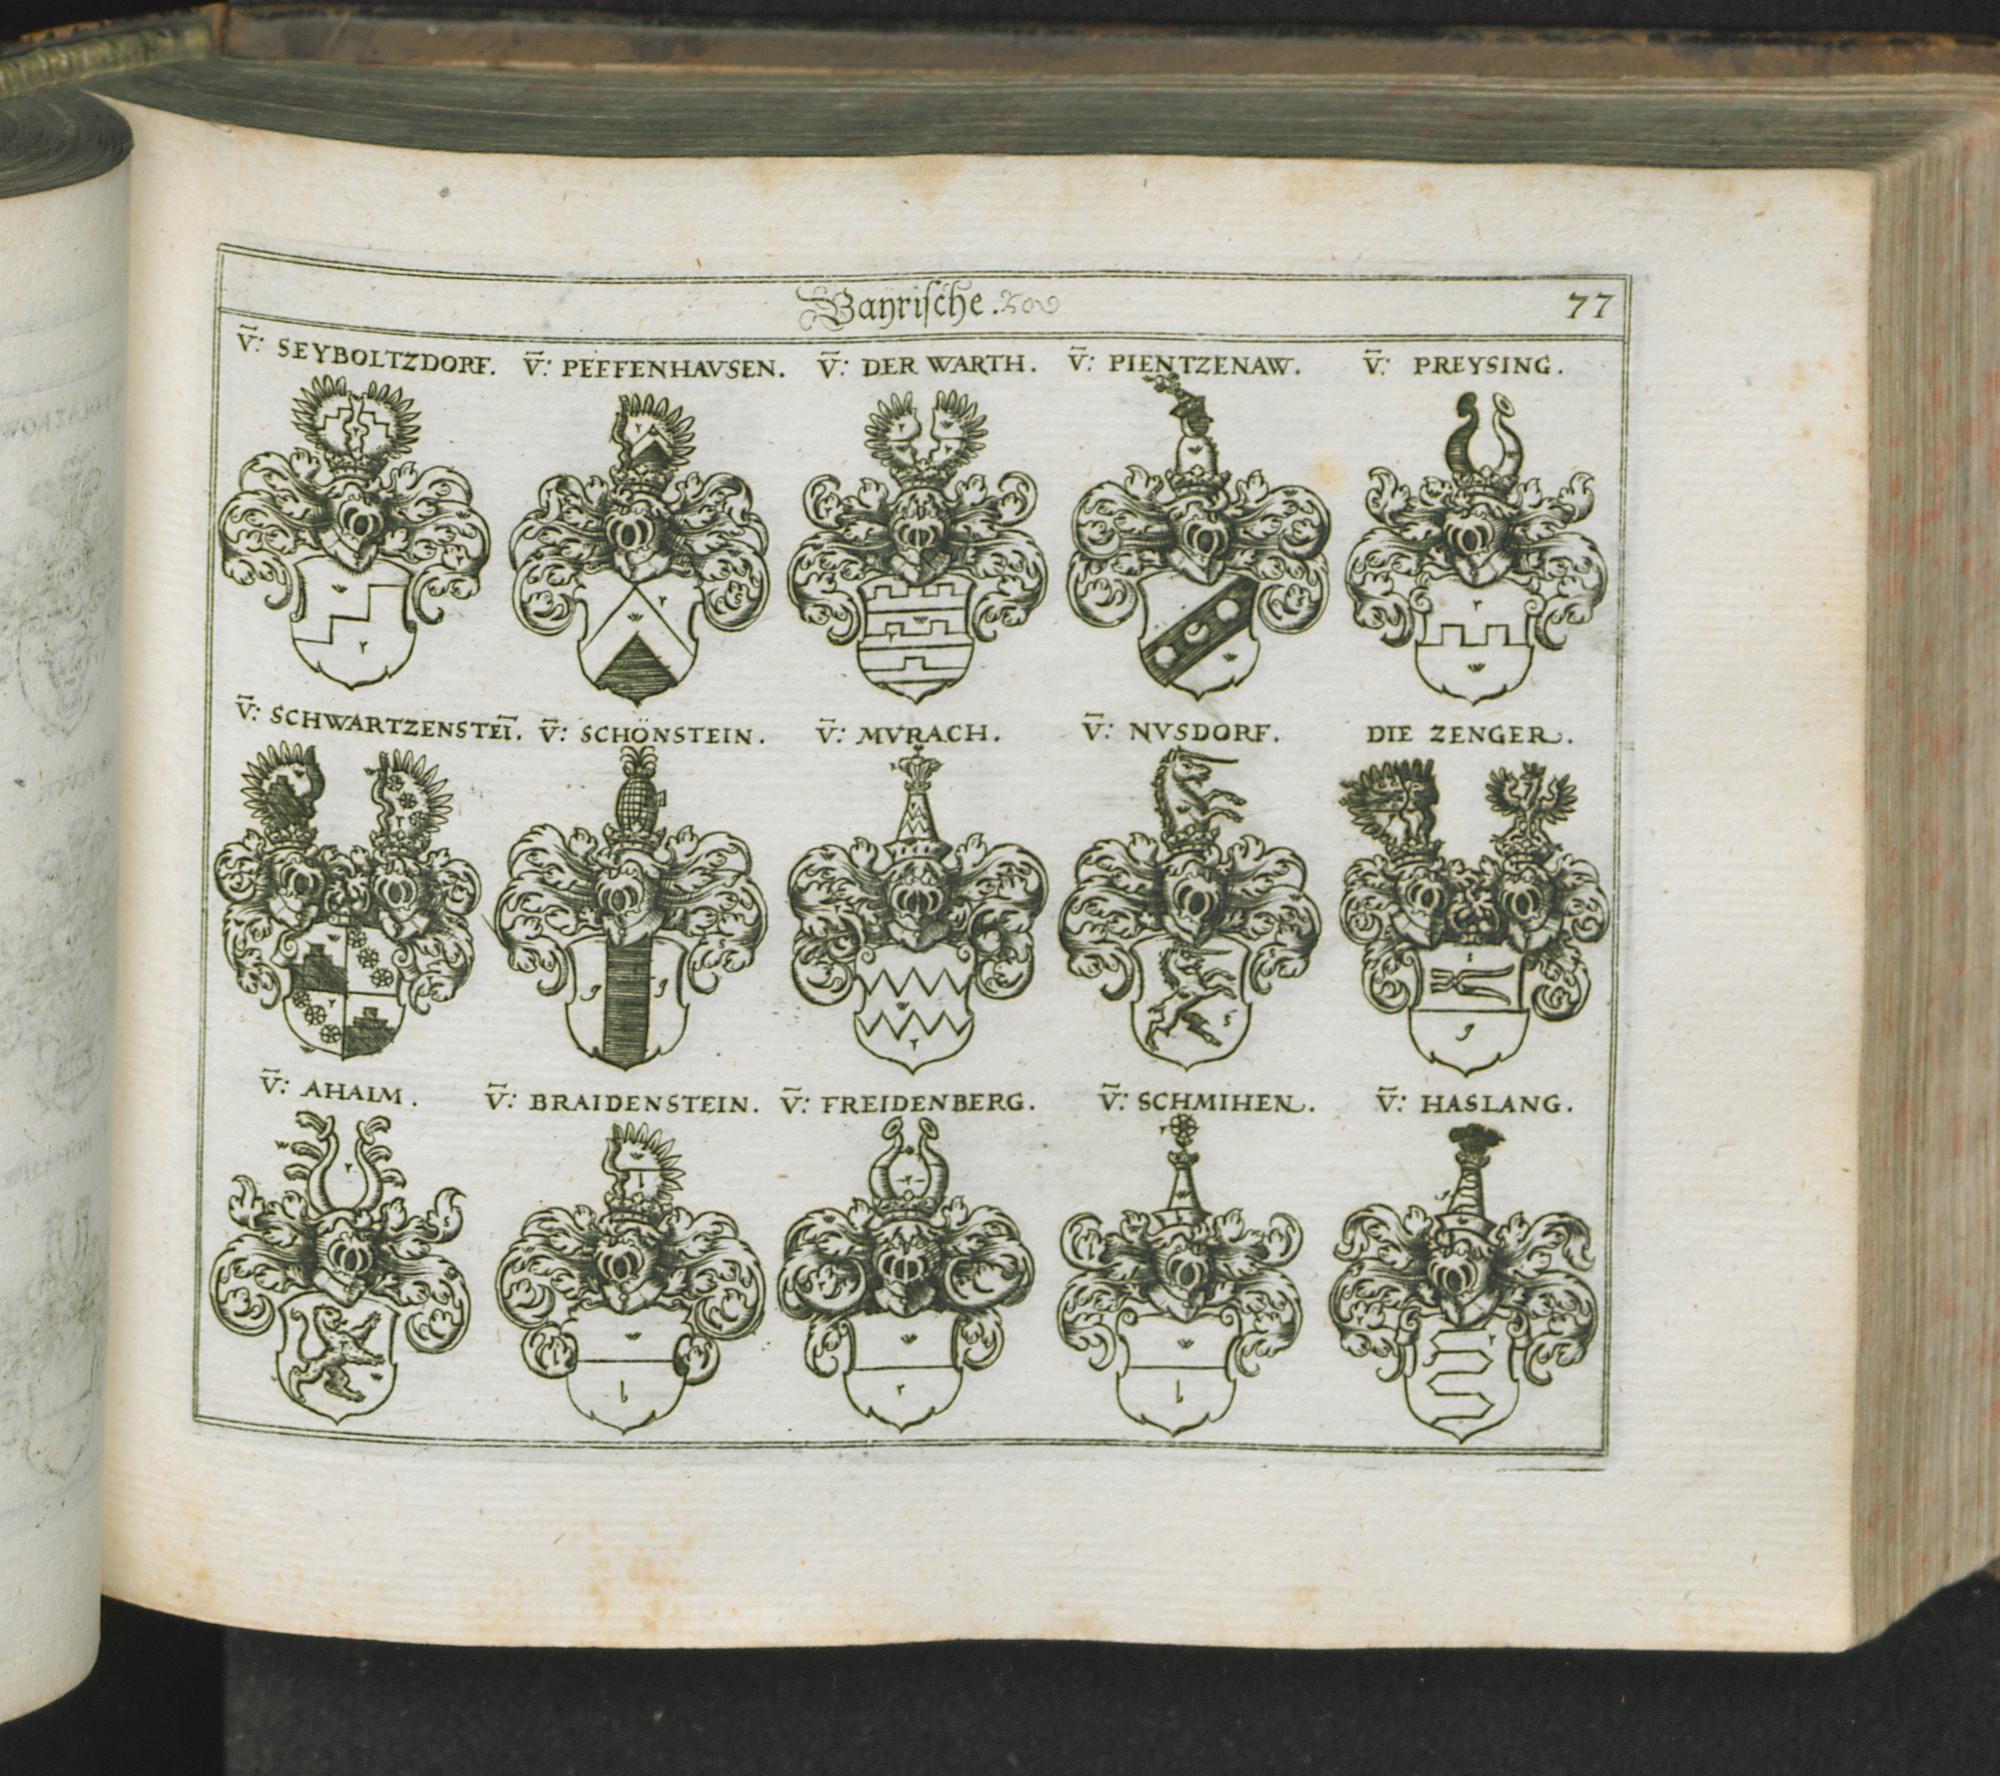 Bayrische.
77
V̄: SEYBOLTZDORF. V̄: PEFFENHAVSEN. V̄: DER WARTH. V̄: PIENTZENAW. V̄: PREYSING.
V̄: SCHWARTZENSTEĪ. V̄: SCHÖNSTEIN. V̄: MVRACH. V̄: NVSDORF. DIE ZENGER.
V̄: AHAIM. V̄: BRAIDENSTEIN. V̄: FREIDENBERG. V̄: SCHMIHEN. V̄: HASLANG.